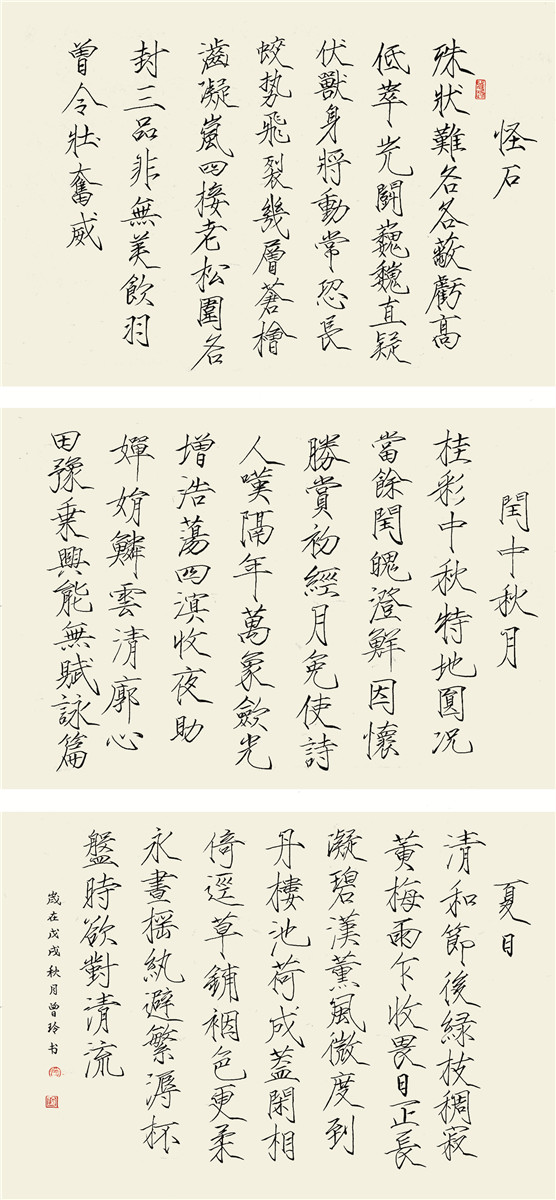 怪石
殊狀難各各蔽虧高
低萃光鬪巍巍直疑
伏獸身將動常恐長
蛟勢飛裂幾層蒼檜
齒凝嵐四接老松圍各
封三品非無美飲羽
曾令壯奮威
閏中秋月
桂彩中秋特地圓况
當餘閏魄澄鮮因懷
勝賞初經月免使詩
人嘆隔年萬象斂光
增浩蕩四溟收夜助
嬋娟鱗雲清廓心
田豫乗興能無賦詠篇
夏日
清和節後緑枝稠寂
黃梅雨乍收畏日正長
凝碧漢薰風微度到
丹樓池荷成蓋閑相
倚逕草鋪裀色更柔
永晝搖紈避繁溽杯
盤時欲對清流
歲在戊戌秋月曾玲书